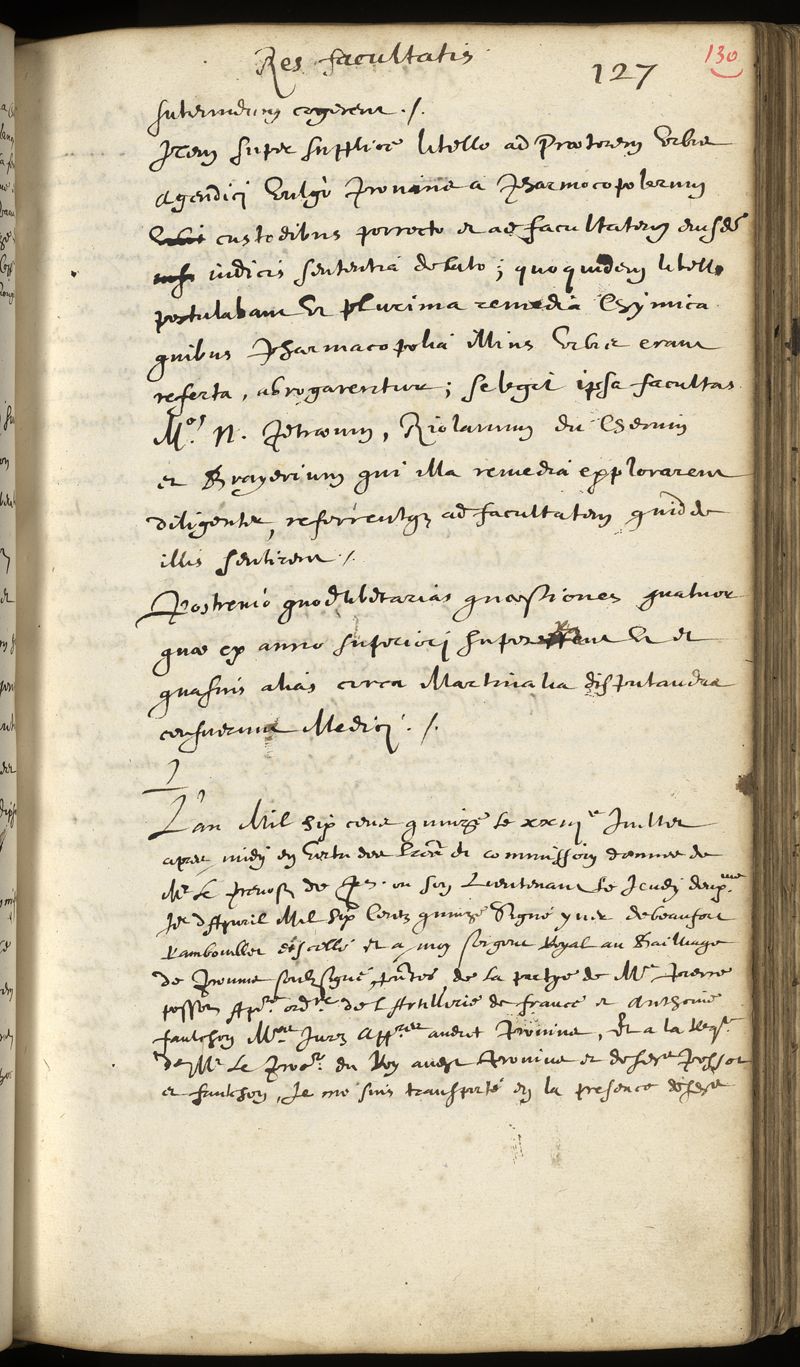 Res facultatis
127
130
subeundum cogerent ./.
Item super supplice libello ad Prætorem Urbis
Agendici vulgò Provine a Pharmocopolarum
custodibus porrecto et ad facultatem eiusdē
iudicis sententiâ delato ; quo quidem libello
postulabant ut plurima remedia Chymica
quibus Pharmacopolia illius Urbis erant
referta, abrogarentur ; selegit ipsa facultas
M.os N. Pietræum, Riolanum du Chemin
et Brayerium qui illa remedia explorarent
diligenter, referrentq ad facultatem quid de
illis sentirent ./.
Postremò quodlibetarias quæstiones quatuor
quæ ex anno superiori ut et
quasuis alias circa Martinalia disputandas
censuerunt Medici ./.
L'an Mil six cens quinze le xxiij.e Juillet
apres midy en vertu des de commission donnee de
Mr le prevost de ou son Lieutenant le Jeudy
d'Apuril Mil six cens quinze Signé yver debeaufort
Rambouillet et scellé et a moy sergent Royal au Bailliage
de Provins soubzsigné de la partye de Mr Pierre
posson Ap.re ord.re de l'Artillerie de france et Anthoine
fauchon M.res Jurez App.res audict Provins, Et a la Req.te
de Mr Le Proc.r du Roy audit Provins et desdits Posson
et fauchon, Je me suis transporté en la presence desdits